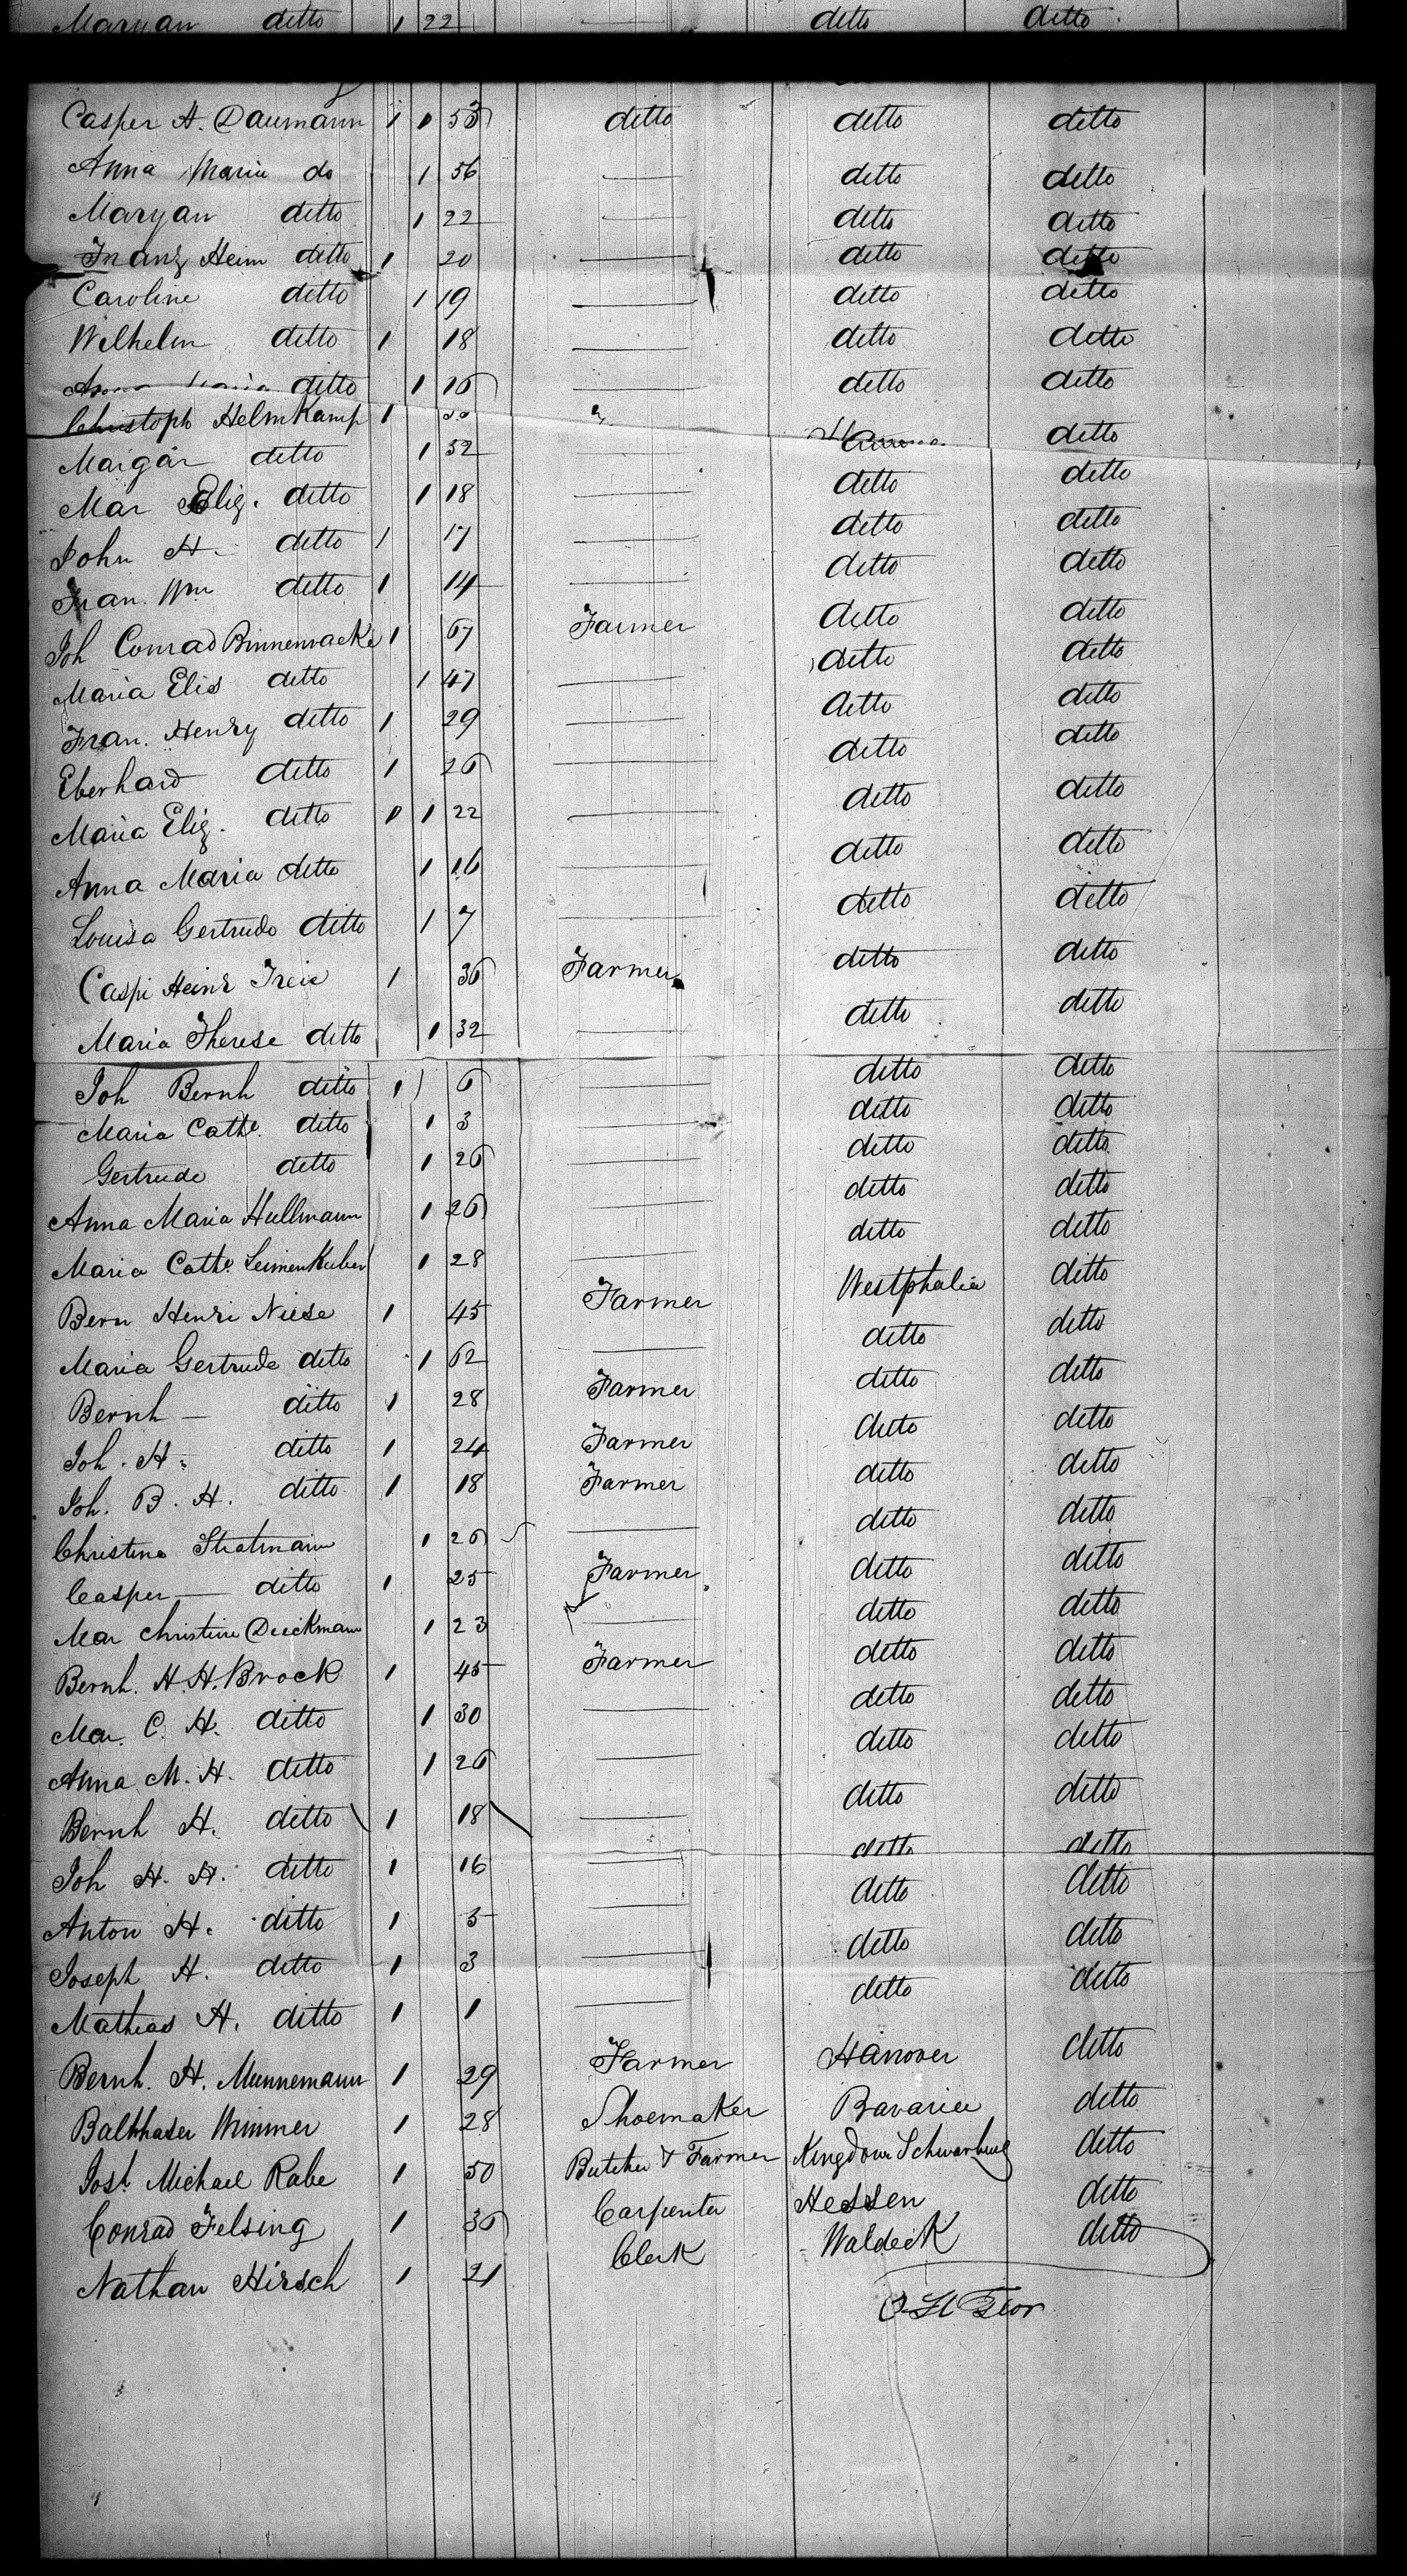 Maryan ditto 1 22 ditto ditto
Casper H. Daumann 1 1 56 ditto ditto ditto
Anna Maria do 1 56 ditto ditto
Maryan ditto 1 22 ditto ditto
Franz Heim ditto 1 20 ditto ditto
Caroline ditto 1 19 ditto ditto
Wilhelm ditto 1 18 ditto ditto
Anna Maria ditto 1 16 ditto ditto
Christoph HelmKamp 1 ditto
Margar ditto 1 52 ditto ditto
Mar Eliz. ditto 1 18 ditto ditto
John H. ditto 1 17 ditto ditto
Fran. Wm ditto 1 14 ditto ditto
Joh Conrad 1 67 Farmer ditto ditto
Maria Elis ditto 1 47 ditto ditto
Fran. Henry ditto 1 29 ditto ditto
Eberhard ditto 1 26 ditto ditto
Maria Eliz. ditto 1 1 22 ditto ditto
Anna Maria ditto 1 16 ditto ditto
Louisa Gertrude ditto 1 7 ditto ditto
Caspi Heinr Freie 1 36 Farmer ditto ditto
Maria Therese ditto 1 32 ditto ditto
Joh Bernh ditto 1 6 ditto ditto
Maria Cathe. ditto 1 3 ditto ditto
Gertrude ditto 1 26 ditto ditto
Anna Maria Hullmann 1 26 ditto ditto
Maria Cathe. LeimenKuhler 1 28 ditto ditto
Bern Henri Niese 1 45 Farmer Westphalia ditto
Maria Gertrude ditto 1 62 ditto ditto
Bernh — ditto 1 28 Farmer ditto ditto
Joh. H. ditto 1 24 Farmer ditto ditto
Joh. B. H. ditto 1 18 Farmer ditto ditto
Christine Stratmann 1 26 ditto ditto
Casper — ditto 1 25 Farmer ditto ditto
Mar Christine Dieckmann 1 23 ditto ditto
Bernh. H. H. Brock 1 45 Farmer ditto ditto
Mar. C. H. ditto 1 30 ditto ditto
Anna M. H. ditto 1 26 ditto ditto
Bernh H. ditto 1 18 ditto ditto
Joh H. H. ditto 1 16 ditto ditto
Anton H. ditto 1 5 ditto ditto
Joseph H. ditto 1 3 ditto ditto
Mathias H. ditto 1 1 ditto ditto
Bernh. H. Munnemann 1 29 Farmer Hanover ditto
Balthaser Wimmer 1 28 Shoemaker Bavaria ditto
Jost Michael Rabe 1 50 Butcher & Farmer Kingdom Schwarburg ditto
Conrad Felsing 1 36 Carpenter Hessen ditto
Nathan Hirsch 1 21 Clerk Waldeck ditto